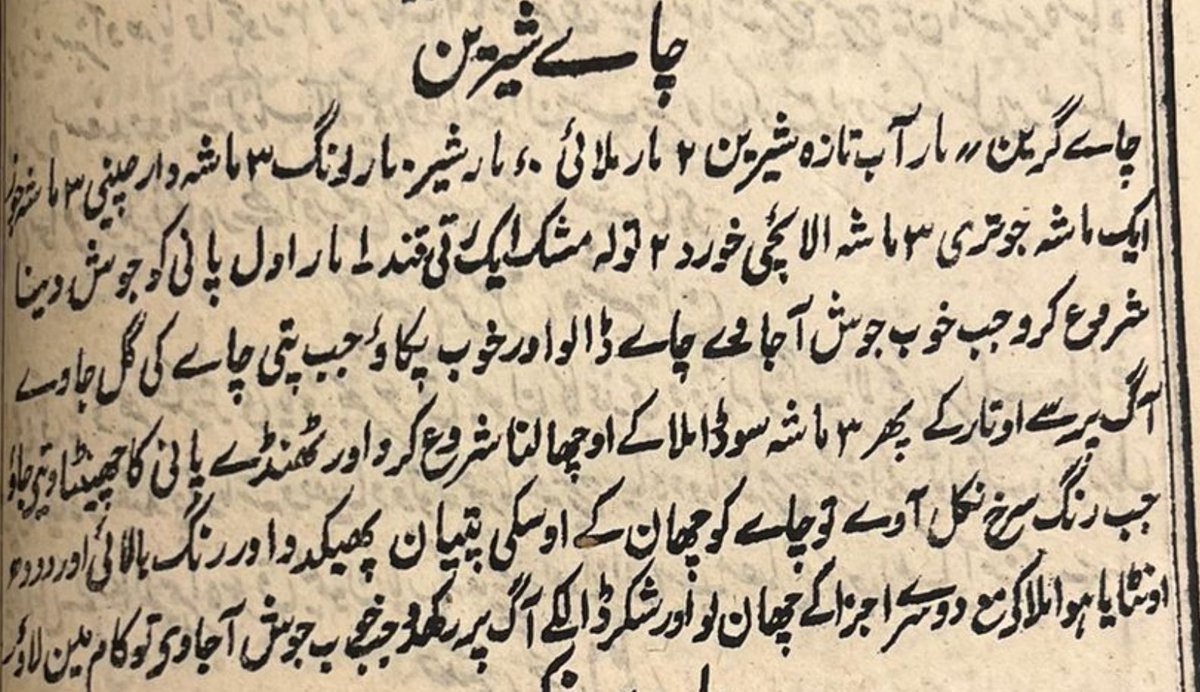 چاے شیرین
چاے گرین ׀׀ مار آب تازہ شیرین ۲ مار ملائی ۰٫ مار شیر ۰ مار لونگ ۳ ماشہ دارچینی ۳ ماشہ
ایک ماشہ جوتری ۳ ماشہ الائچی خورد ۲ تولہ مشک ایک رتی قند لہ مار اول پانی کو جوش دینا
شروع کرو جب خوب جوش آجاوے چاے ڈالو اور خوب پکاؤ جب پتی چاے کی گل جاوے
آگ پر سے اوتار کے پھر ۳ ماشہ سوڈا ملا کے اوچھالنا شروع کرو اور ٹھنڈے پانی کا چھینٹا دیتے جاؤ
جب رنگ سرخ نکل آوے تو چاے کو چھان کے اوسکی پتیان پھیکدو اور رنگ بالائی اور دودھ
اونٹایا ہوا ملا کر مع دوسرے اجزا کے چھان لو اور شکر ڈالکے آگ پر رکھدو جب خوب جوش آجاوی تو کام مین لاؤ